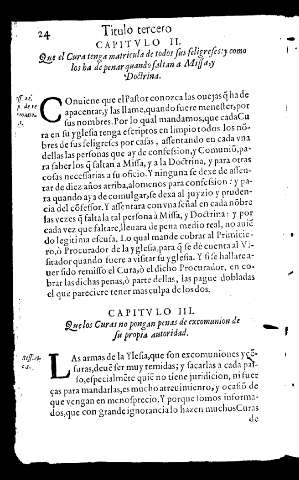 24
Titulo tercero
CAPITVLO II.
Que el Cura tenga matricula de todos sus feligreses: y como
los ha de penar quando faltan a Missa, y
Doctrina.
COnuiene que el Pastor conozca las ouejas q̃ ha de
apacentar, y las llame, quando fuere menester, por
sus nombres. Por lo qual mandamos, que cada Cu
ra en su yglesia tenga escriptos en limpio todos los nõ
bres de sus feligreses por casas, assentando en cada vna
dellas las personas que ay de confession, y Comuniõ, pa-
ra saber los q̃ faltan a Missa, y a la Doctrina, y para otras
cosas necessarias a su oficio. Y ninguna se dexe de assen-
tar de diez años arriba, alomenos para confession: y pa-
ra quando aya de comulgar, se dexa al juyzio y pruden-
cia del cõfessor. Y assentara con vna señal en cada nõbre
las vezes q̃ falta la tal persona à Missa, y Doctrina: y por
cada vez que faltare, lleuara de pena medio real, no auiẽ
do legitima escusa. Lo qual mande cobrar al Primicie-
ro, ò Procurador de la yglesia para q̃ se dè cuenta al Vi-
sitador quando fuere a visitar su yglesia. Y si se hallare a-
uer sido remisso el Cura, ò el dicho Procurador, en co-
brar las dichas penas, ò parte dellas, las pague dobladas
el que pareciere tener mas culpa de los dos.
CAPITVLO III.
Que los Curas no pongan penas de excomunion de
su propia autoridad.
LAs armas de la Yglesia, que son excomuniones y cẽ-
suras, deuẽ ser muy temidas; y sacarlas a cada pas-
so, especialmẽte quiẽ no tiene juridicion, ni fuer
ças para mandarlas, es mucho atreuimiento, y ocasiõ de
que vengan en menosprecio. Y porque somos informa-
dos, que con grande ignorancia lo hazen muchos Curas
de